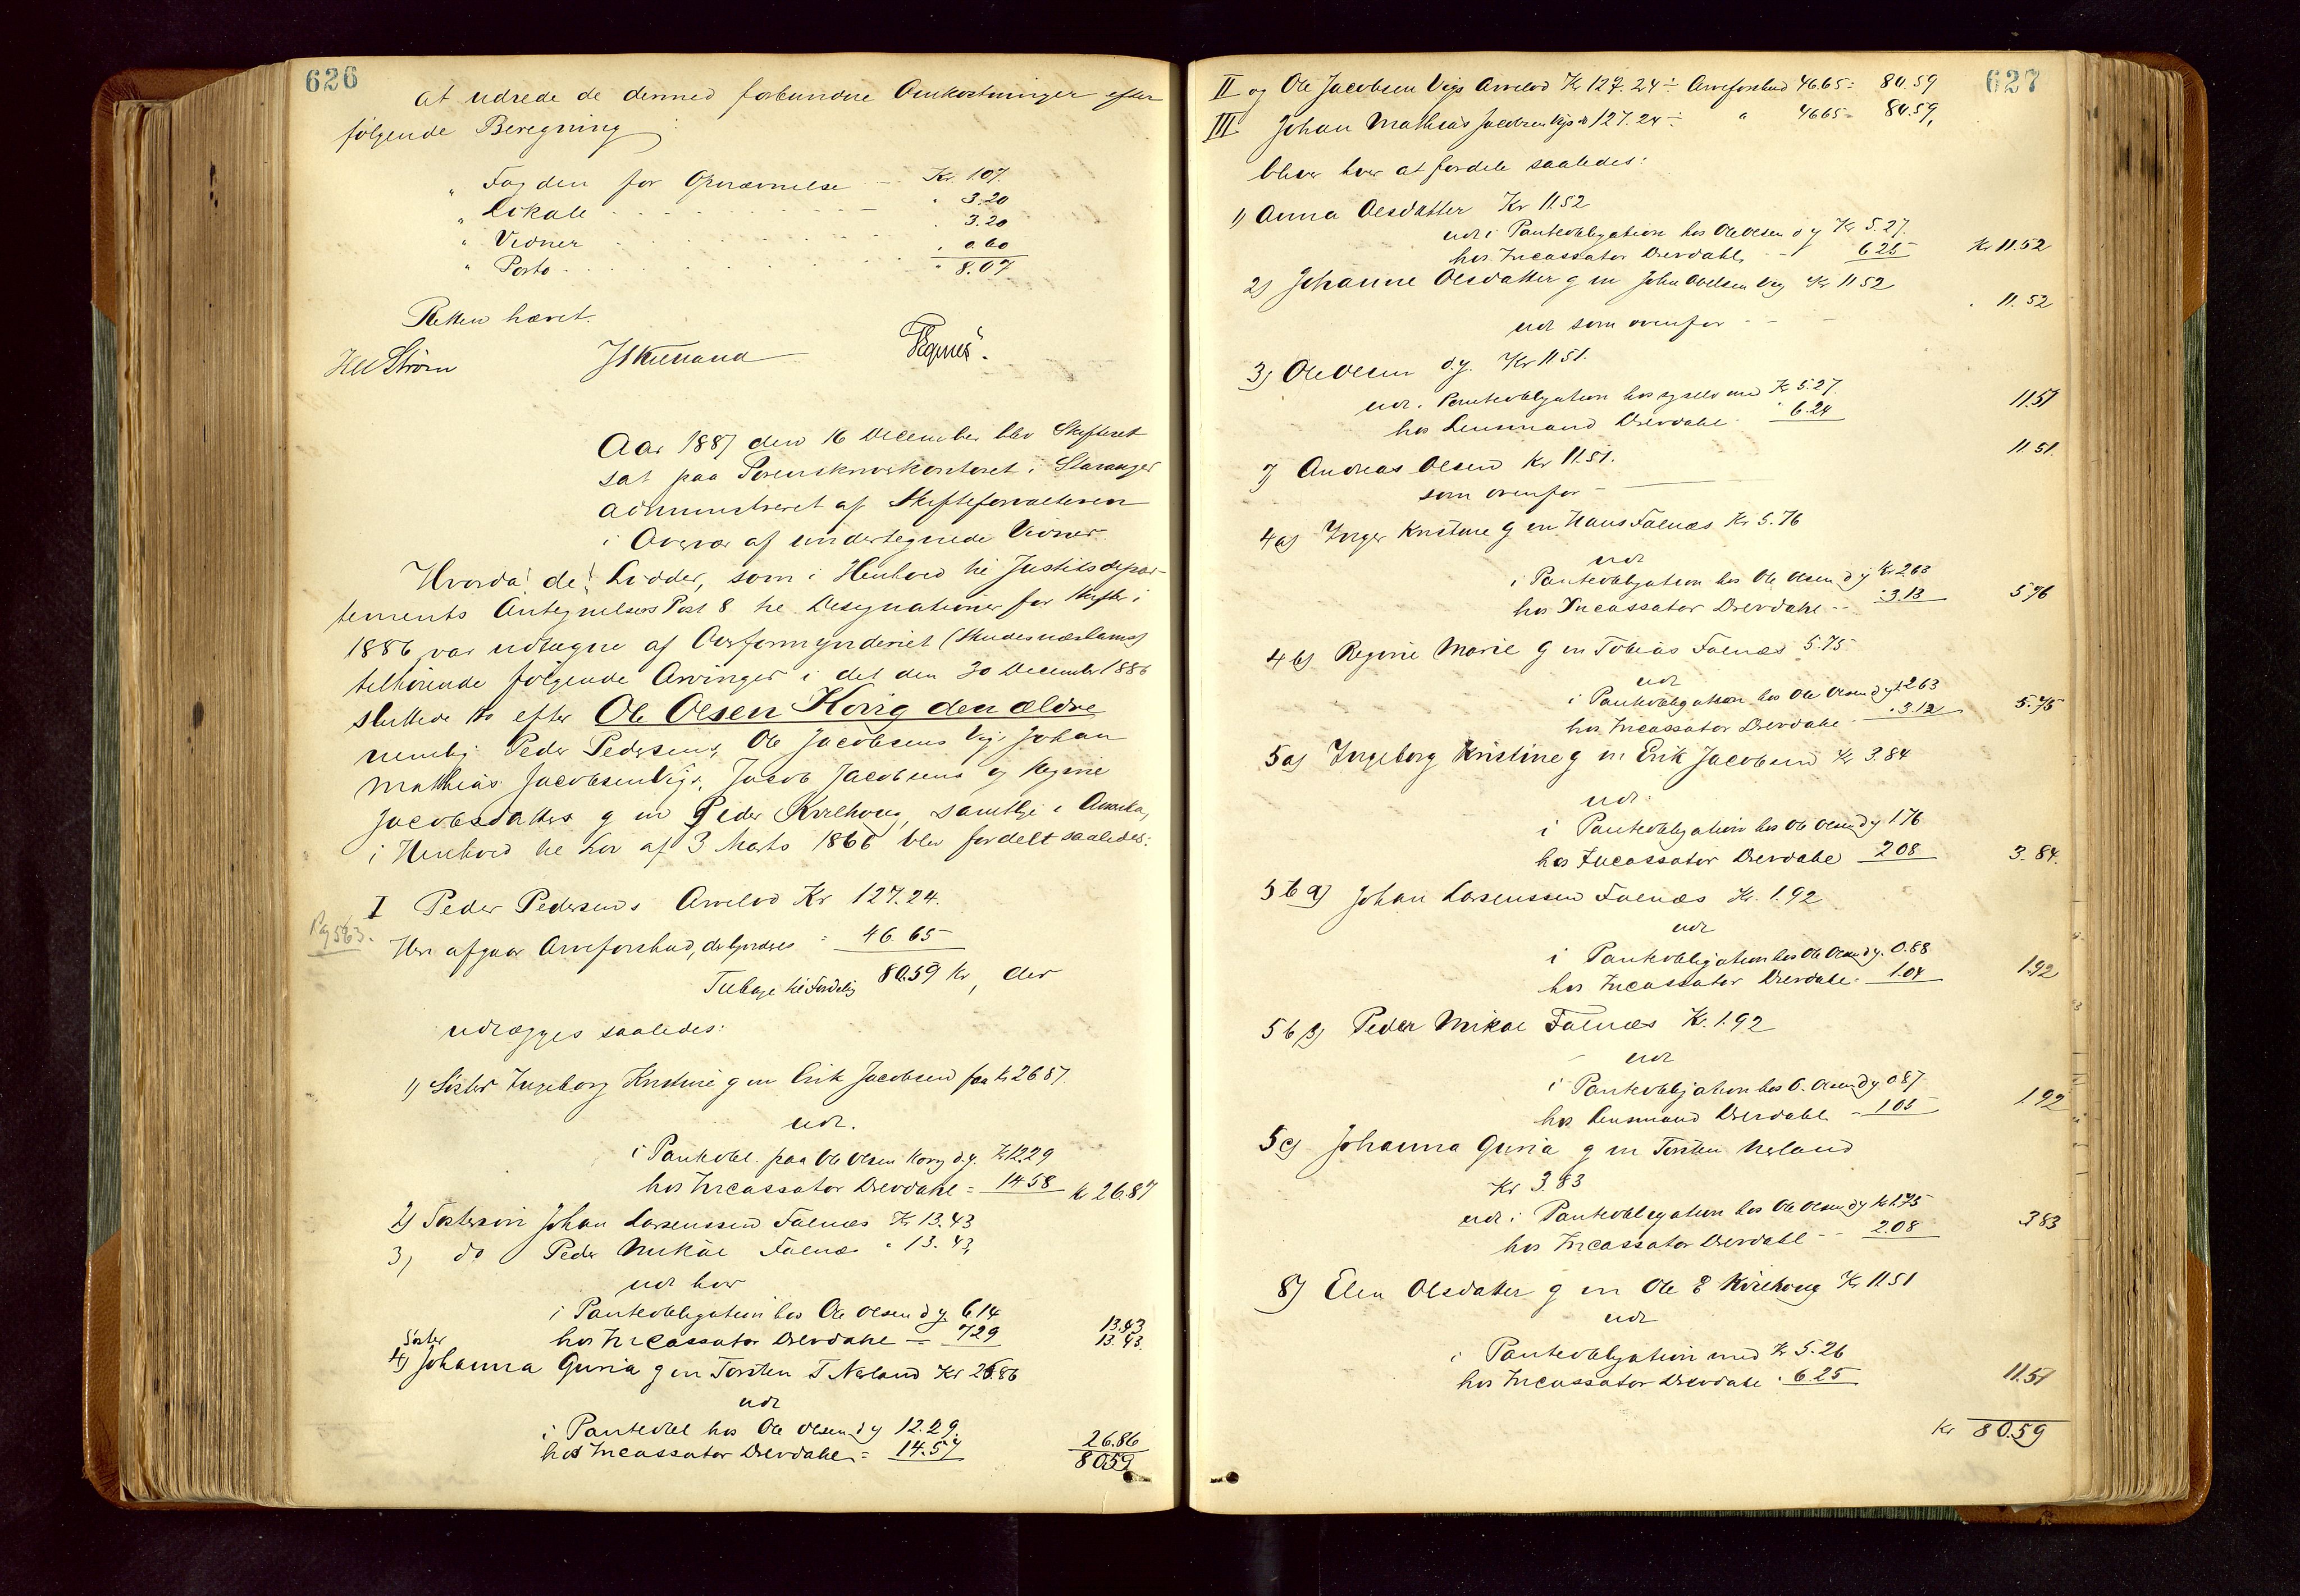 626
at udrede de dermed forbundne Omkostninger efter
følgende Beregning:
" Fogden for Opnævnelse — Kr. 1.07.
" Lokale . . . " 3.20
" Vidner . . . " 3.20
" Porto . . . " 0.60
" 8.07
Retten hævet.
Strøm
Aar 1887 den 16 December blev Skifteret
sat paa Sorenskriverkontoret i Stavanger
administreret af Skifteforvalteren
i Overvær af undertegnede Vidner.
Hvorda! de! Lodder, som i Henhold til Justitsdepar-
tements Antegnelses Post 8 til Designationer for Skifter i
1886 var udtagne af Overformynderiet (Skudesnæshavns)
tilhørende følgende Arvinger i det den 30 December 1886
sluttede Bo efter Ole Olsen Körig den ældre
nemlig Peder Pedersens, Ole Jacobsens Vigs, Johan
Mathias Jacobsen Vigs, Jacob Jacobsens og Regine
Jacobsdatter g m Peder Kirkhoug, samtlige i Amerika,
i Henhold til Lov af 3 Marts 1866 blev fordelt saaledes:
I Peder Pedersens Arvelod Kr 127.24.
Pag 563.
Heri afgaar Arveforskud, = 46.65
Tilbage til Fordeling 80.59 Kr, der
udlægges saaledes:
1) Søster Ingeborg Kristine g m Erik Jacobsen faar Kr 26.87.
udl.
i Panteobl. paa Ole Olsen Korig d.y. Kr 12.29
hos Incassator Drevdahl = 14.58 Kr 26.87
2) Søstersøn Johan Larsenssen Falnæs Kr 13.43
3) do Peder Mikal Falnæs " 13.43,
udl hver
i Panteobligation hos Ole Olsen d y. 6.14
hos Incassator Drevdahl = 7.29 13.43
13.43.
Søster
4) Johanna Guria g m Torsten T Næland Kr 26.86
udl
i Panteobl hos Ole Olsen d y 12.29.
hos Incassator Drevdahl = 14.57 26.86
80.59
627
II og Ole Jacobsen Vigs Arvelod Kr 127.24 ÷ Arveforskud 46.65 = 80.59
III Johan Mathias Jacobsen Vigs do 127.24 ÷ " 46.65 = 80.59,
bliver hver at fordele saaledes:
1) Anna Olesdatter Kr 11.52
udl i Panteobligation hos Ole Olsen d y Kr 5.27.
hos Incassator Drevdahl - - 6.25 Kr 11.52
2) Johanne Olesdatter g m John Vig Kr 11.52
udl som ovenfor - - - " 11.52
3) Ole Olsen d.y. Kr 11.51.
udl. Panteobligation hos sig selv med Kr 5.27.
hos Lensmand Drevdahl " 6.24 11.51
7) Andreas Olsen Kr 11.51.
som ovenfor — 11.51.
4a) Inger Kristine g m Hans Falnæs Kr 5.76
udl
i Panteobligation hos Ole Olsen d y Kr 2.63
hos Incassator Drevdahl - - " 3.13 5.76
4b) Regine Marie g m Tobias Falnæs 5.75
udl
i Panteobligation hos Ole Olsen d y 2.63
hos Incassator Drevdahl - " 3.12 5.75
5a) Ingeborg Kristine g m Erik Jacobsen Kr 3.84
udl:
i Panteobligation hos Ole Olsen d y 1.76
hos Incassator Drevdahl 2.08 3.84.
5 b α) Johan Larsenssen Falnæs Kr. 1.92
udl
i Panteobligation hos Ole Olsen d y. 0.88
hos Incassator Drevdahl - 1.04 1.92
5 b β) Peder Mikal Falnæs Kr. 1.92
udl
i Panteobligation hos O. Olsen d y 0.87
hos Lensmand Drevdahl - 1.05 1.92
5c) Johanna Guria g m Torsten Næland
Kr 3.83
udl i Panteobligation hos Ole Olsen d y Kr 1.75
hos Incassator Drevdahl - - 2.08 3.83
8) Elen Olsdatter g m Ole E Kirkhoug Kr 11.51
udl
i Panteobligation med Kr 5.26
hos Incassator Drevdahl " 6.25 11.51
Kr 80.59